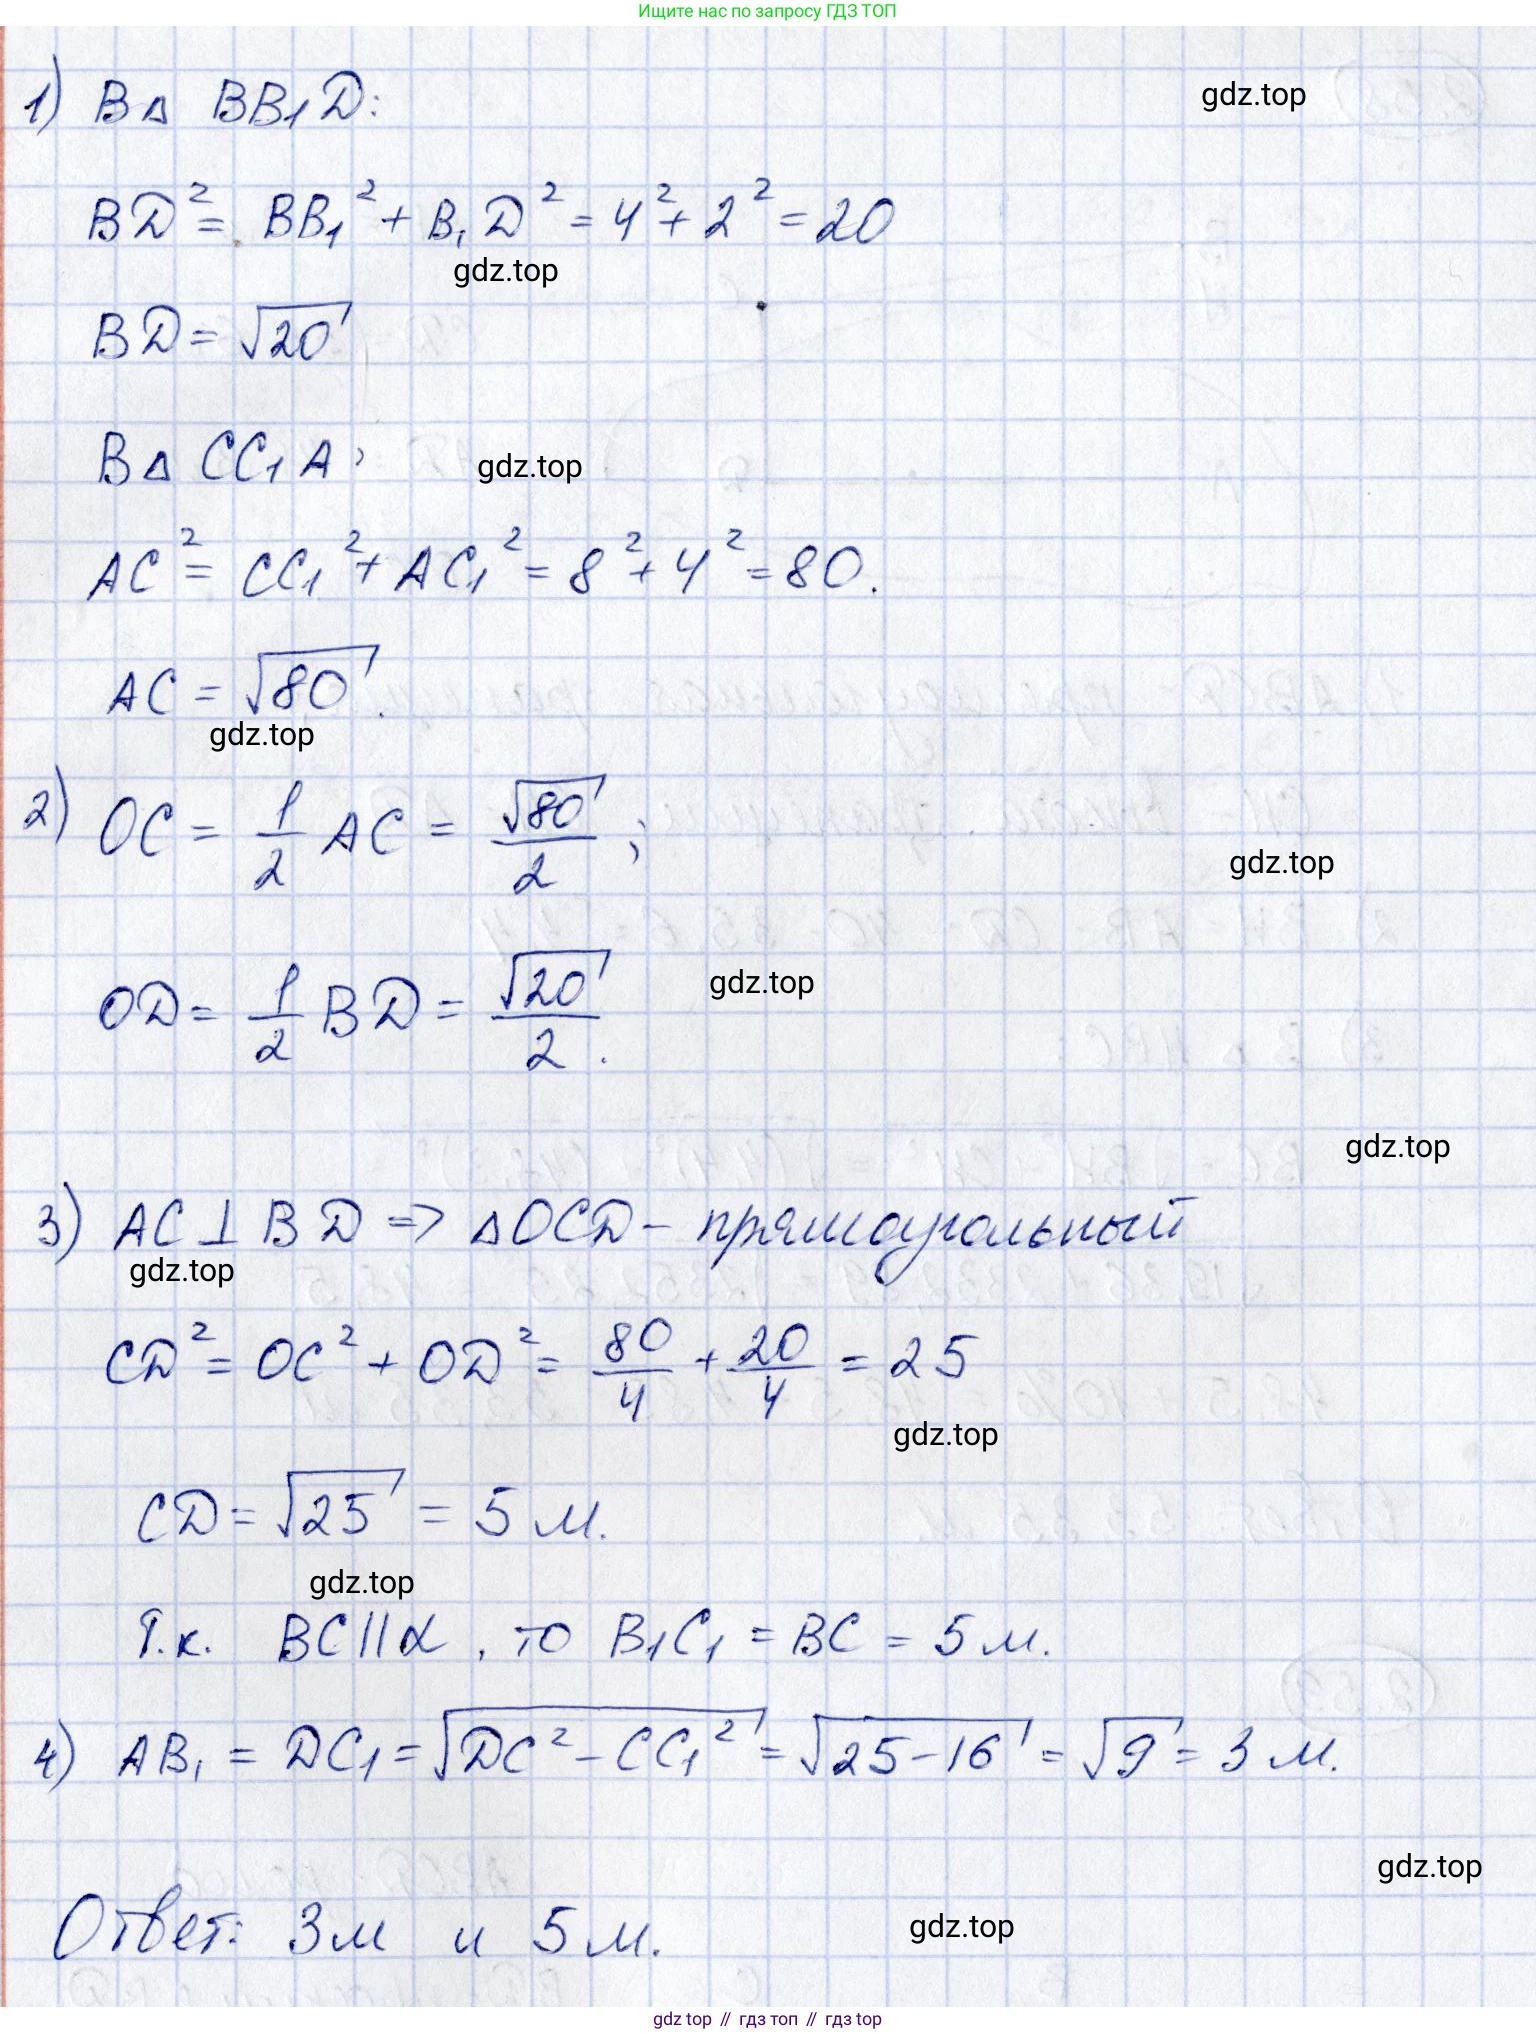 Ищите нас по запросу ГДЗ ТОП
1) В△ BB₁D:
gdz.top
BD² = BB₁² + B₁D² = 4² + 2² = 20
gdz.top
BD = √20
В△ CC₁A:
gdz.top
AC² = CC₁² + AC₁² = 8² + 4² = 80.
AC = √80.
gdz.top
2) OC = 1/2 AC = √80/2;
gdz.top
OD = 1/2 BD = √20/2.
gdz.top
gdz.top
3) AC ⊥ BD => △OCD – прямоугольный
gdz.top
CD² = OC² + OD² = 80/4 + 20/4 = 25
gdz.top
CD = √25 = 5 м.
gdz.top
Т.к. BC || α, то B₁C₁ = BC = 5 м.
4) AB₁ = DC₁ = √DC² – CC₁² = √25 – 16 = √9 = 3 м.
gdz.top
Ответ: 3 м и 5 м.
gdz.top
gdz top // гдз топ // гдз top